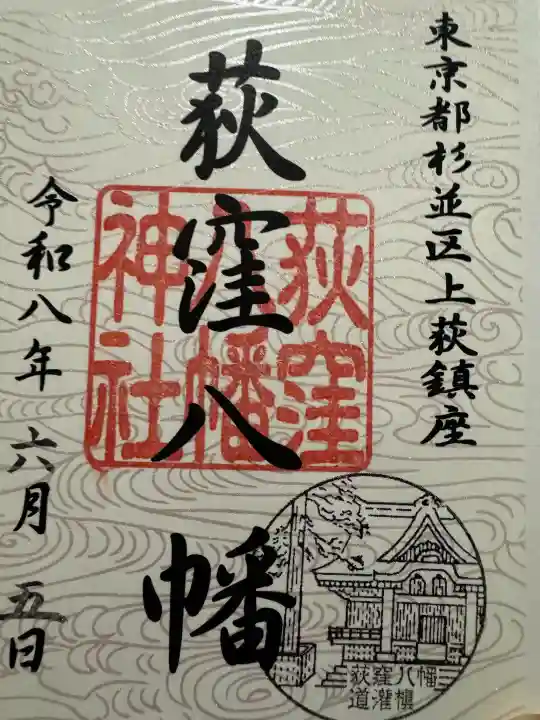 東京都杉並区上荻鎮座
荻窪八幡
荻窪
八幡
神社
令和八年六月五日
荻窪八幡
道灌槇